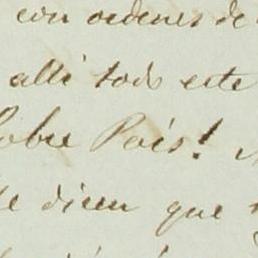 con ordenes de
alli todo este
Pobre Pais!
te dicen que